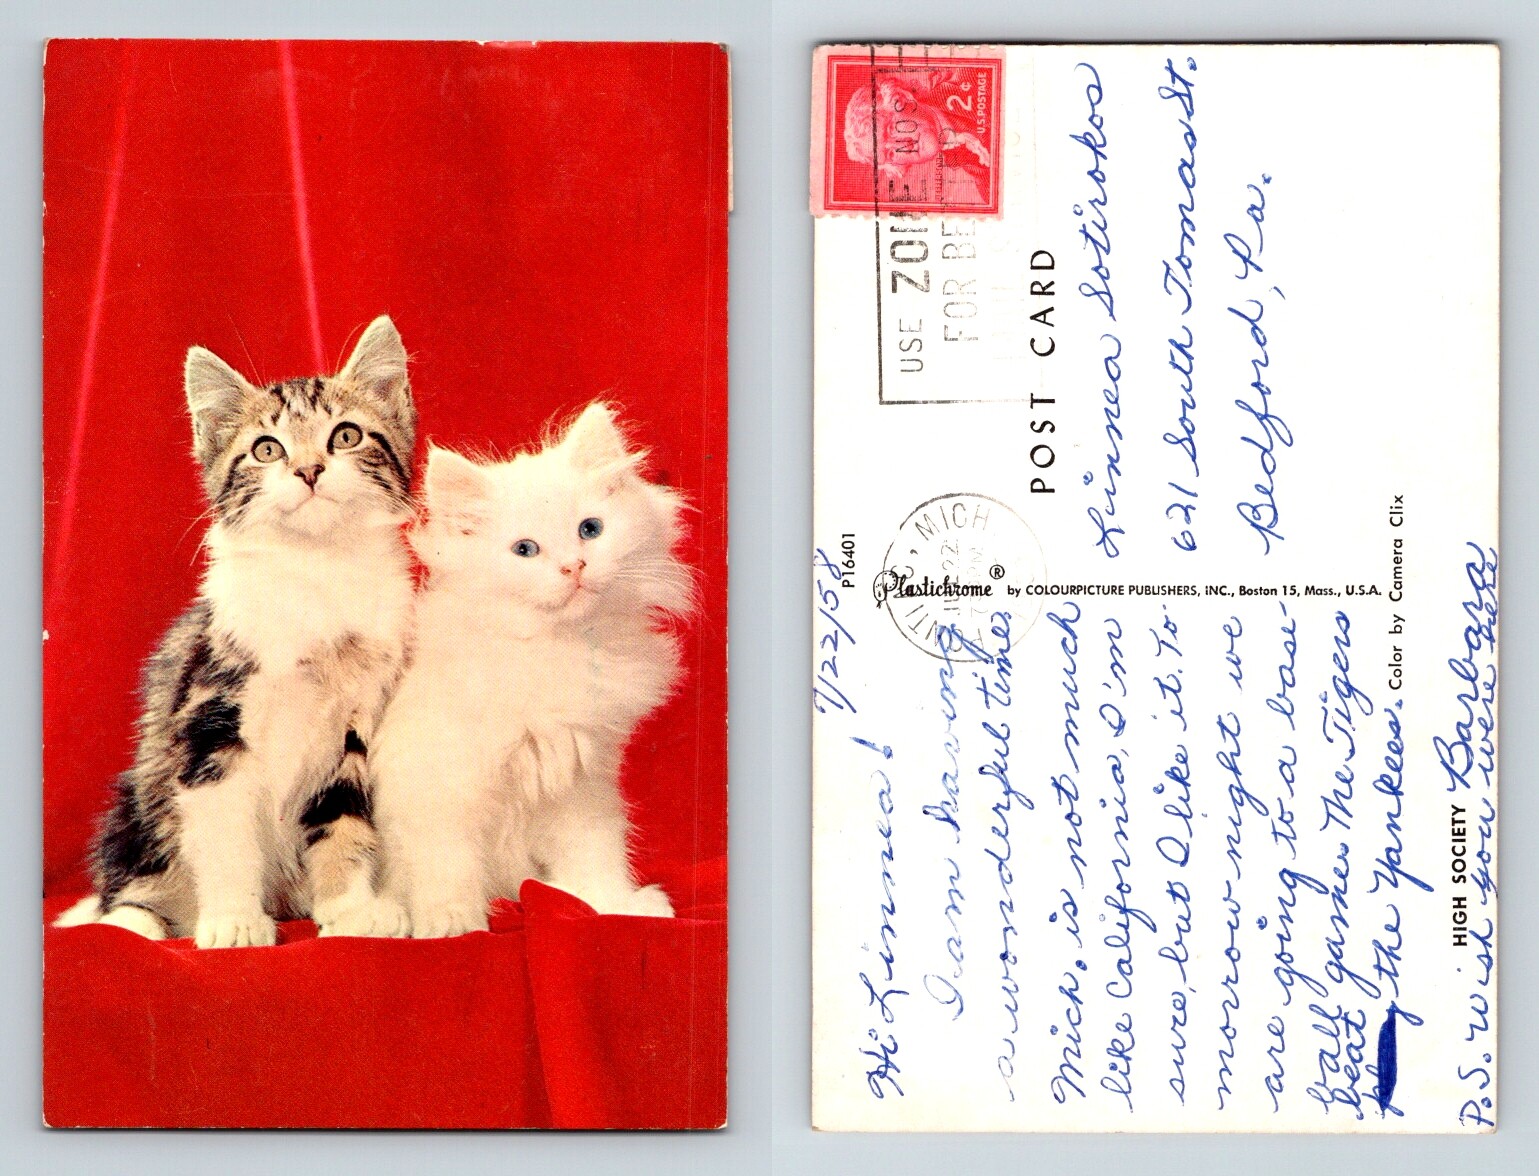 7/22/58
Hi Linnea!
I am having
a wonderful time.
Mich. is not much
like California, I'm
sure, but I like it. To-
morrow night we
are going to a base-
ball game. The Tigers
beat
the Yankees.
Barbara
P.S. Wish you were here
HIGH SOCIETY
P16401
Plastichrome ® by COLOURPICTURE PUBLISHERS, INC., Boston 15, Mass., U.S.A.
Color by Camera Clix
POST CARD
2¢
U.S. POSTAGE
USE ZONE NOS.
FOR BE
MICH
Linnea Sotirokos
621 South Tomas St.
Bedford, Pa.